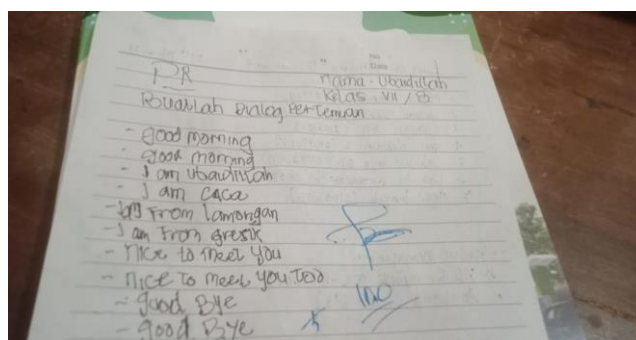 No
Date
PR
Nama . Ubaidillah
Kelas VII / B
Buatlah Dialog Pertemuan
- good morning
- good morning
- I am Ubaidillah
- I am CaCa
- From Lamongan
- I am From gresik
- nice to meet you
- nice to meet you too
- good Bye
- good Bye
100